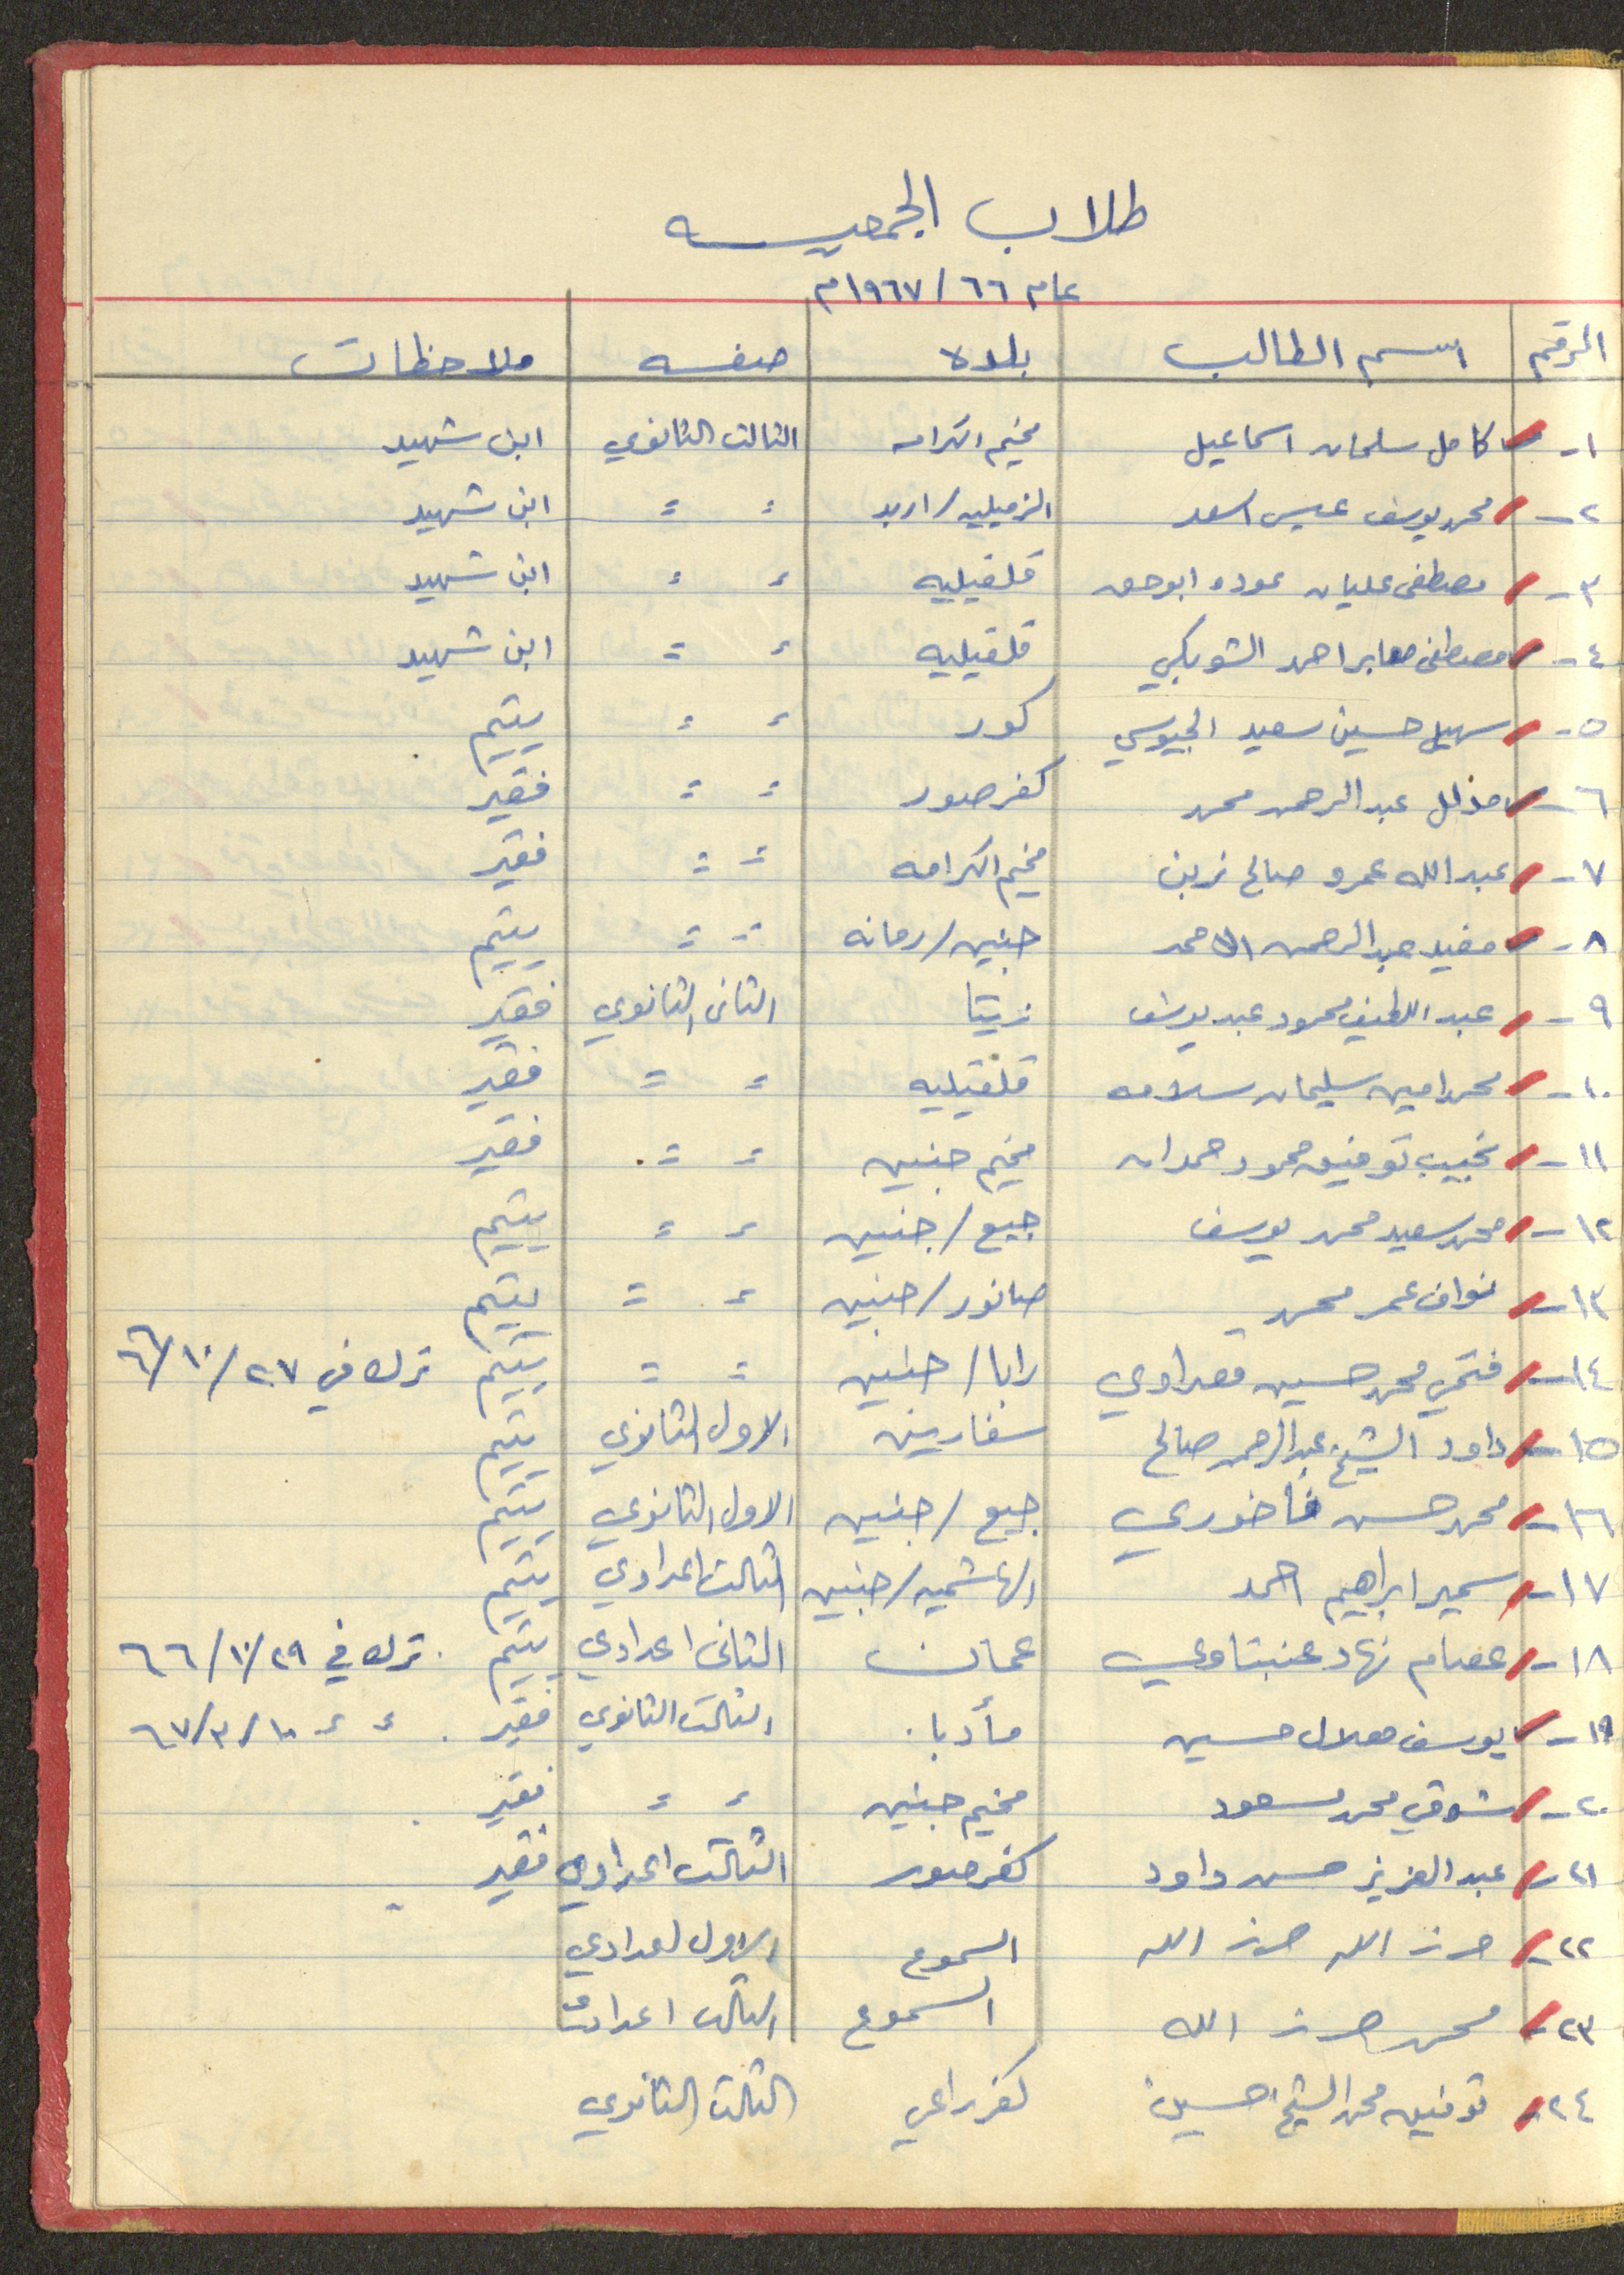 طلاب الجمعيه
عام ٦٦ / ١٩٦٧م
الرقم اسم الطالب بلده صفه ملاحظات
١- كامل سلمان اسماعيل مخيم الكرامه الثالث الثانوي ابن شهيد
٢- محمد يوسف عيسى اسعد / اربد = = ابن شهيد
٣- مصطفى عليان عوده ابو قلقيليه = = ابن شهيد
٤- مصطفى صابر احمد الشوبكي قلقيليه = = ابن شهيد
٥- سهيل حسين سعيد الجيوسي كور = = يتيم
٦- عبد الرحمن محمد كفر صور = = فقير
٧- عبد الله عمرو صالح زبن مخيم الكرامه = = فقير
٨- مفيد عبد الرحمن الاحمد جنين/رمانه = = يتيم
٩- عبد اللطيف محمود عبد يوسف زيتا الثاني الثانوي فقير
١٠- محمد امين سليمان سلامه قلقيليه = = فقير
١١- نجيب توفيق محمود حمدان مخيم جنين = = فقير
١٢- محمد سعيد محمد يوسف جبع / جنين = = يتيم
١٣- نواف عمر محمد صانور / جنين = = يتيم
١٤- فتحي محمد حسين قصراوي رابا / جنين = = يتيم ترك في ٢٧/١٠/٦٦
١٥- داود الشيخ عبد الرحمن صالح سفارين الاول الثانوي يتيم
١٦- محمد حسن فاخوري جبع / جنين الاول الثانوي يتيم
١٧- سمير ابراهيم احمد الهاشميه / جنين الثالث اعدادي يتيم
١٨- عصام نهاد عنبتاوي عمان الثاني اعدادي يتيم ترك في ٢٩/١٠/٦٦
١٩- يوسف هلال حسين مأدبا الثالث الثانوي فقير = = ١٠/٣/٦٧
٢٠- شوقي محمد مسعود مخيم جنين = = فقير
٢١- عبد العزيز حسن داود كفر صور الثالث اعدادي فقير
٢٢- حرز الله حرز الله السموع الاول اعدادي
٢٣- محمد حرز الله السموع الثالث اعدادي
٢٤- توفيق محمد الشيخ حسين كفر راعي الثالث الثانوي